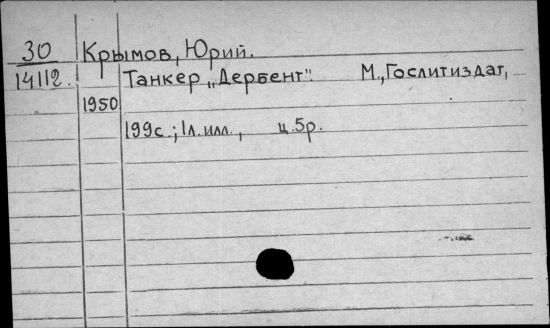 30 Крымов, Юрий.
14112. Танкер „Дербент". М., Гослитиздат,
1950
199с.; 1л. илл., ц. 5р.